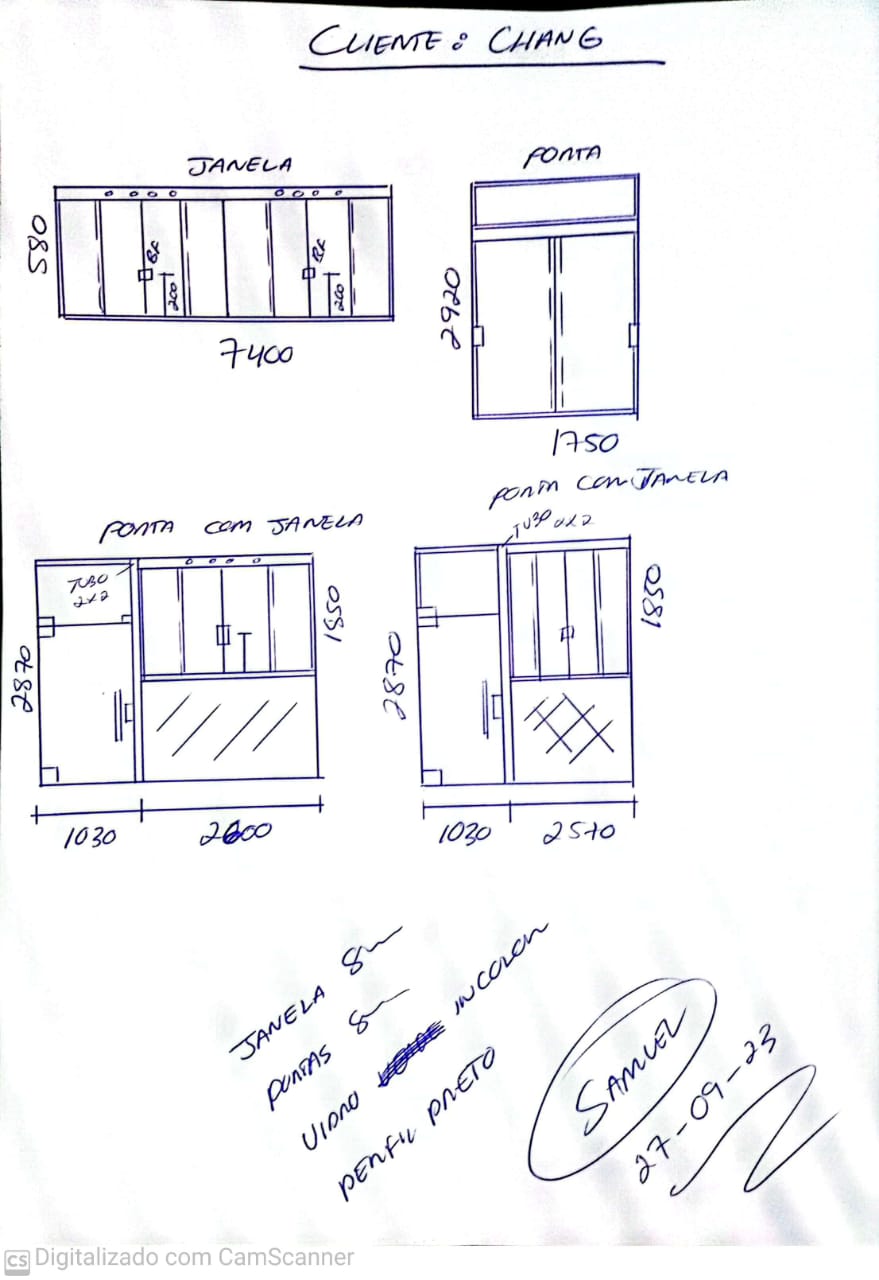 CLIENTE: CHANG
JANELA
PORTA
580
BX
BX
200
200
7400
2920
1750
PORTA COM JANELA
PORTA COM JANELA
TUBO
2x2
TUBO 2x2
2870
1850
2870
1850
1030
2600
1030
2570
JANELA 8m
PORTAS 8m
VIDRO INCOLOR
PERFIL PRETO
SAMUEL
27-09-23
CS Digitalizado com CamScanner